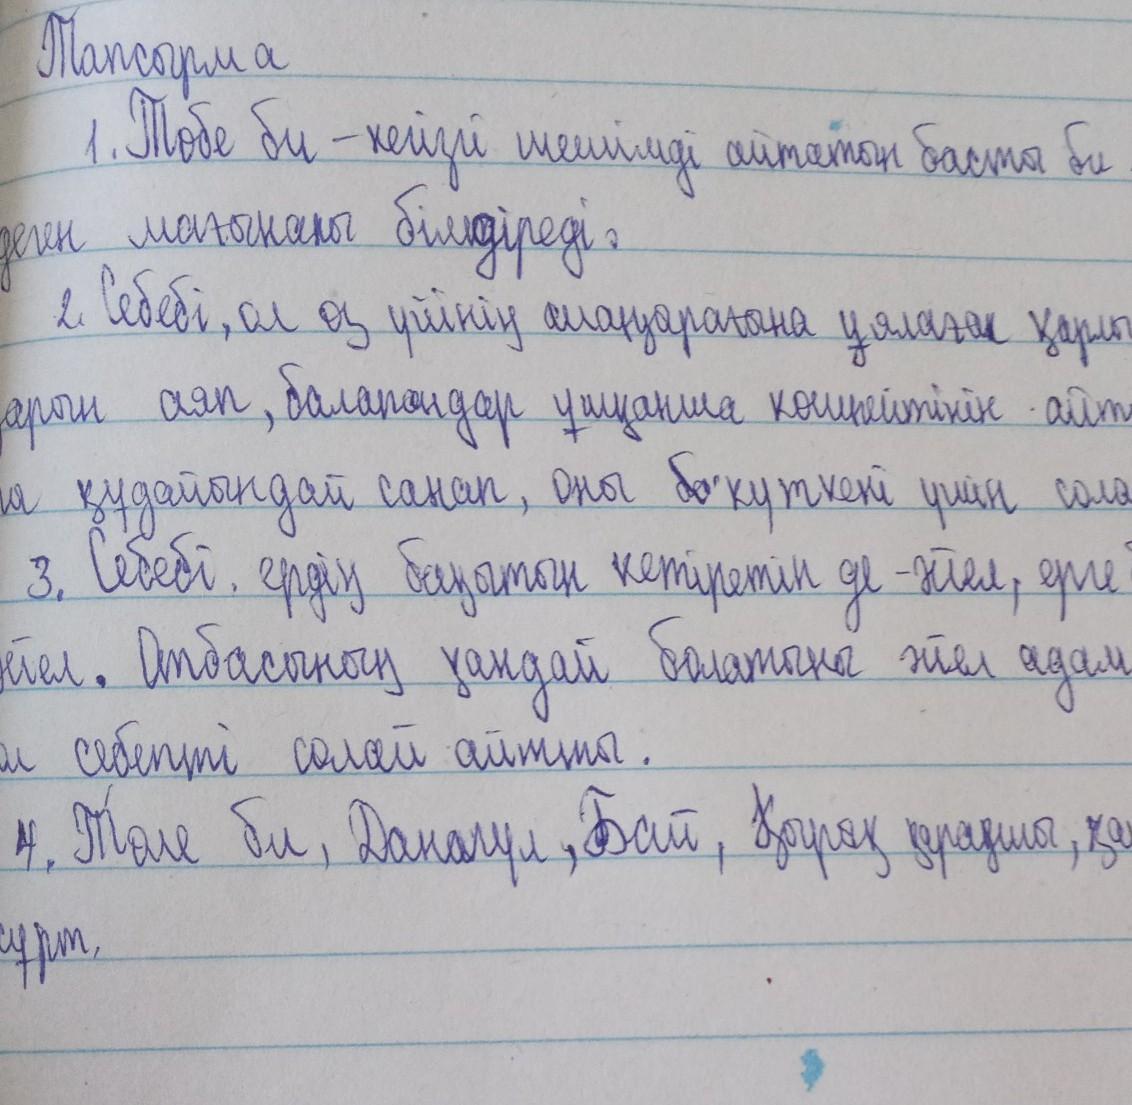 Тапсырма
1. Төбе би – негізгі шешімді айтатын басты би
деген мағынаны білмдіреді.
2. Себебі, ол өз үйінің шаңарағына ұялаған қарлы
арын аяп, балапандар ұшқанша көшпейтінін айт
құдайындай санап, оны күткені үшін сола
3. Себебі. ердің бақытын кетіретін де - әйел, ерге
әйел. Отбасының қандай болатыны әйел адам
себепті солай айтқты.
4. Төле би, Данагүл, Бай, Қырақ қарақшы, қа
сұрт.